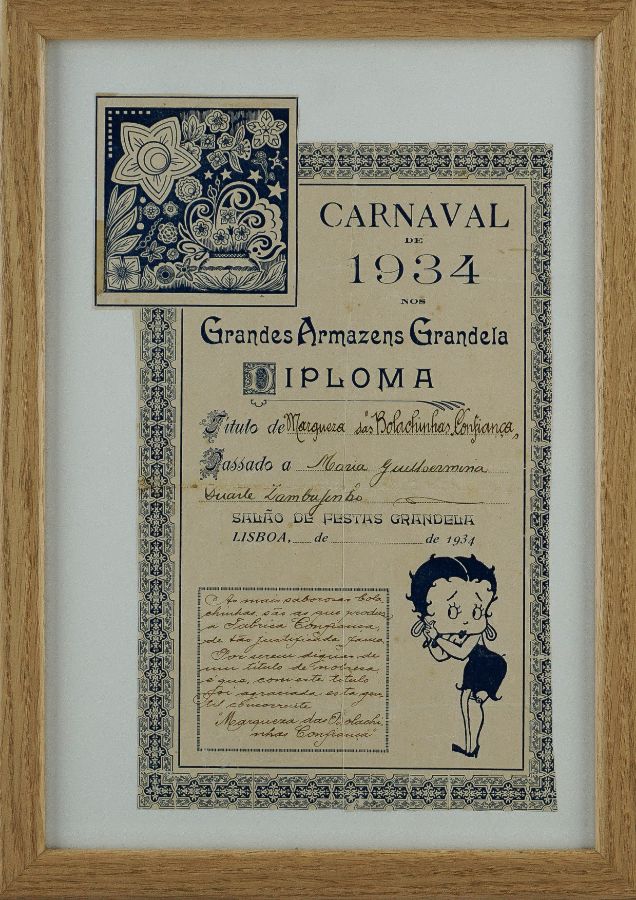 CARNAVAL
DE
1934
NOS
Grandes Armazens Grandela
DIPLOMA
Titulo de "Marqueza das Bolachinhas Confiança"
Passado a Maria Guilhermina
Duarte Zambujinho
SALÃO DE FESTAS GRANDELA
LISBOA, de de 1934
As mais saborosas bola
chinhas, são as que produz
a Fabrica Confiança,
de tão justificada fama.
Por serem dignas de
um titulo de nobresa
é que, com este titulo
foi agraciada esta gen
til concorrente
"Marqueza das Bolachi
nhas Confiança"